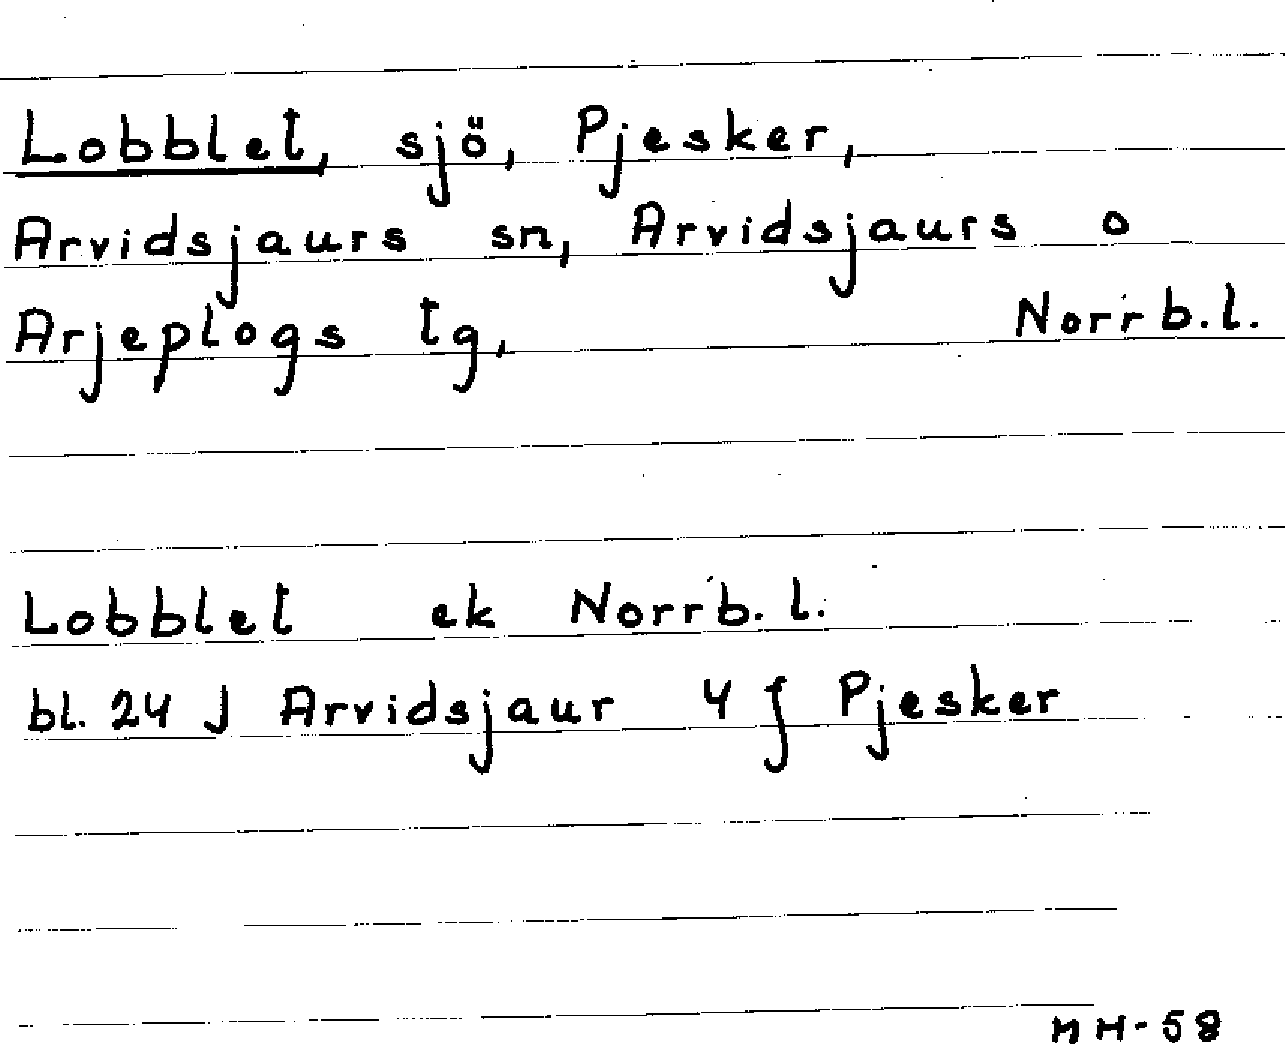 Lobblet, sjö, Pjesker,
Arvidsjaurs sn, Arvidsjaurs o
Arjeplogs tg, Norrb.l.
Lobblet ek Norrb.l.
bl. 24 J Arvidsjaur 4 f Pjesker
MH-58